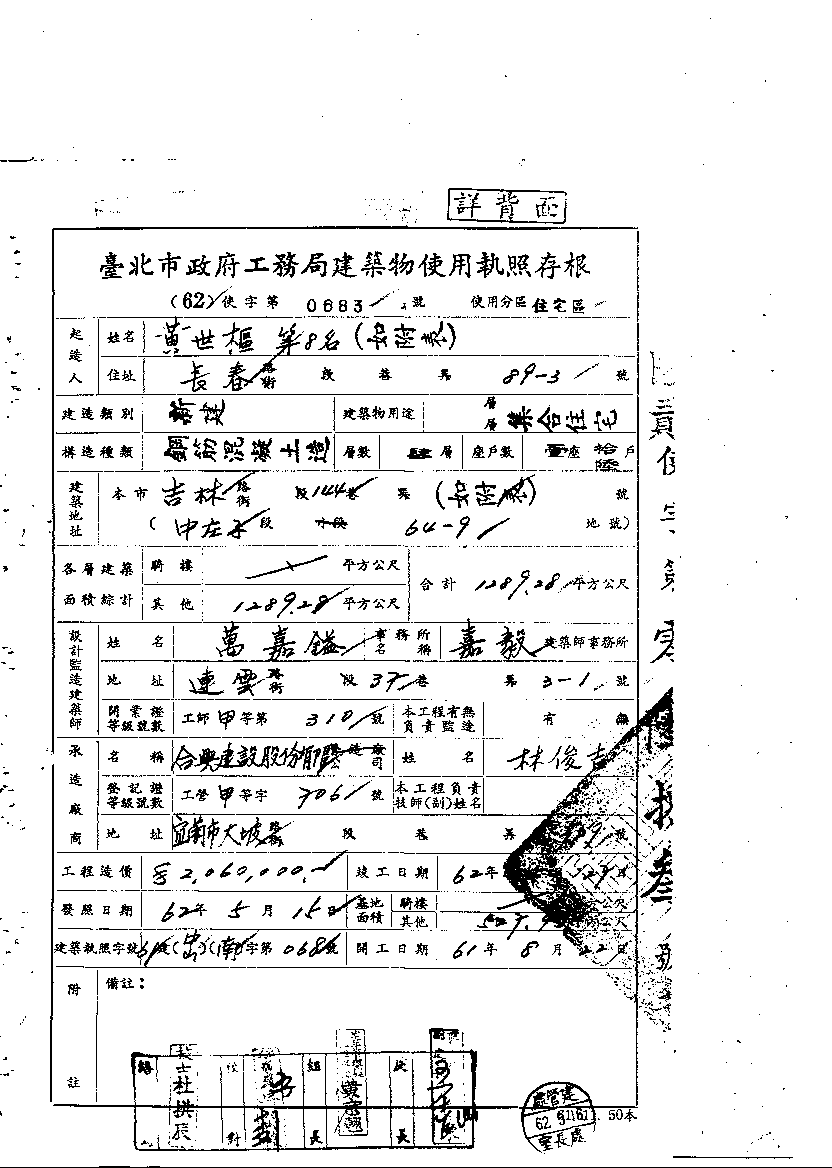 詳背面
臺北市政府工務局建築物使用執照存根
(62)使字第 0683 號 使用分區 住宅區
起造人 姓名 黃世樞 等8名(如附表)
住址 長春路街 段 巷 弄 89-3 號
建造類別 新建 建築物用途 層層 集合住宅
構造種類 鋼筋混凝土造 層數 肆層 座戶數 壹座 拾陸戶
建築地址 本市 吉林路街 段 144巷 弄 (如附表) 號
(中庄子段 小段 64-9 地號)
各層建築面積綜計 騎樓 平方公尺 合計 1289.28 平方公尺
其他 1289.28 平方公尺
設計監造建築師 姓名 萬嘉鎰 事務所名稱 嘉毅 建築師事務所
地址 連雲路街 段 37巷 弄 3-1 號
開業證等級號數 工師甲等第 310 號 本工程有無負責監造 有 無
承造廠商 名稱 合興建設股份有限公司 姓名 林俊吉
登記證等級號數 工營甲等字 7061 號 本工程負責技師(副)姓名
地址 宜蘭市大坡路街 段 巷 弄 號
工程造價 2,060,000.- 竣工日期 62年
發照日期 62年 5月 15日 基地面積 騎樓 平方公尺
其他 平方公尺
建築執照字號 61建()(南)字第 068 號 開工日期 61年 8月 22日
附註 備註:
技士杜拱辰 校對 組長 處長
建管處
62 5 16
室長處
50本